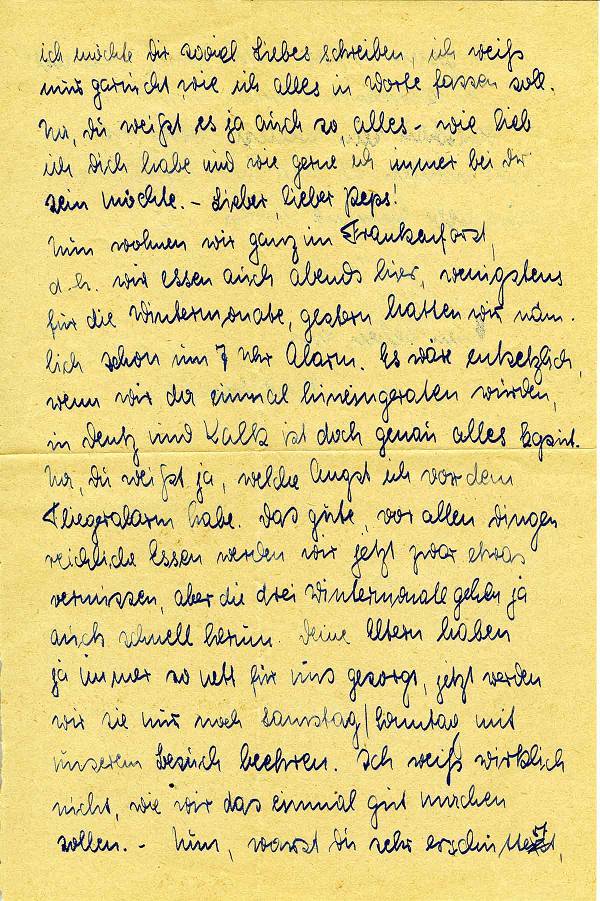 ich möchte Dir soviel Liebes schreiben, ich weiß
nur garnicht wie ich alles in Worte fassen soll.
Na, du weißt es ja auch so alles – wie lieb
ich dich habe und wie gerne ich immer bei dir
sein möchte. – Lieber, lieber Peps!
Nun wohnen wir ganz im Frankenforst,
d.h. wir essen auch abends hier, wenigstens
für die Wintermonate, gestern hatten wir näm-
lich schon um 7 Uhr Alarm. Es wäre entsetzlich,
wenn wir da einmal hineingeraten würden,
in Deutz und Kalk ist doch genau alles
Na, du weißt ja, welche Angst ich vor dem
Fliegeralarm habe. Das gute, vor allen dingen
reichliche Essen werden wir jetzt zwar etwas
vermissen, aber die drei Wintermonate gehen ja
auch schnell herum. Deine Eltern haben
ja immer so nett für uns gesorgt, jetzt werden
wir sie nur noch Samstag/Sonntag mit
unserem Besuch beehren. Ich weiß wirklich
nicht, wie wir das einmal gut machen
sollen. – Nun, warst du sehr erschüttert,